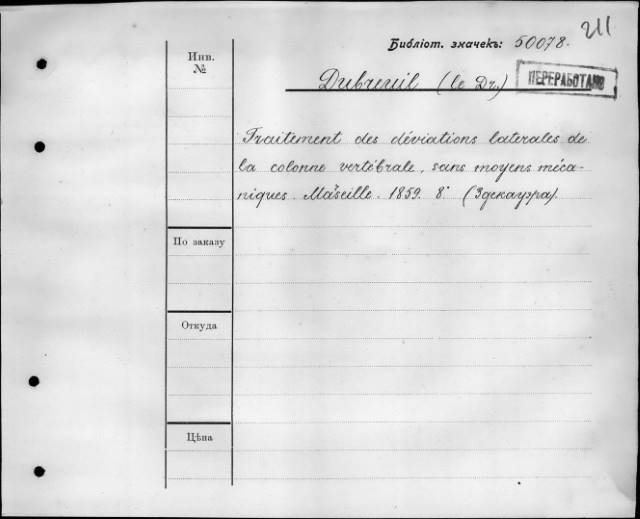 211
Библіот. значекъ: 50078.
Инв. №
Dubreuil (le Dr.)
ПЕРЕРАБОТАНО
Traitement des déviations laterales de
la colonne vertébrale, sans moyens méca-
niques. Marseille. 1859. 8° (Здекауэра).
По заказу
Откуда
Цѣна